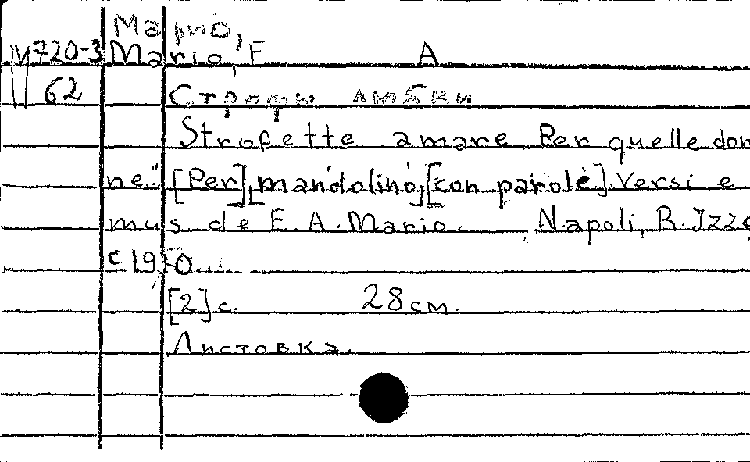 Марио,
М720-3 Mario, E A
62 Строфы любви
Strofette amare "Per quelle don
ne." [Per] mandolino, [con parole]. Versi e
mus de E. A. Mario. Napoli, R. Izzo
c 19
[2] с. 28 см.
Листовка.